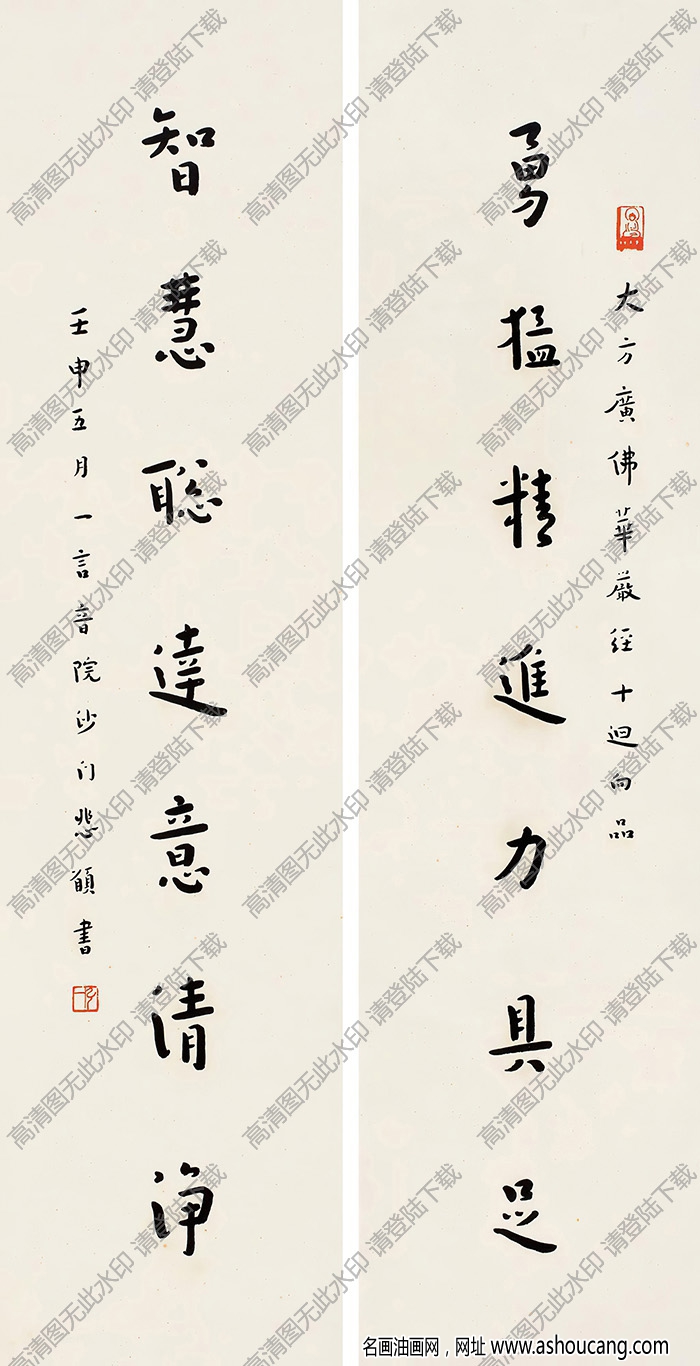 大方廣佛華嚴經十迴向品
勇猛精進力具足
智慧聰達意清淨
壬申五月一言音院沙门悲願書
高清图无此水印 请登陆下载
名画油画网，网址 www.ashoucang.com